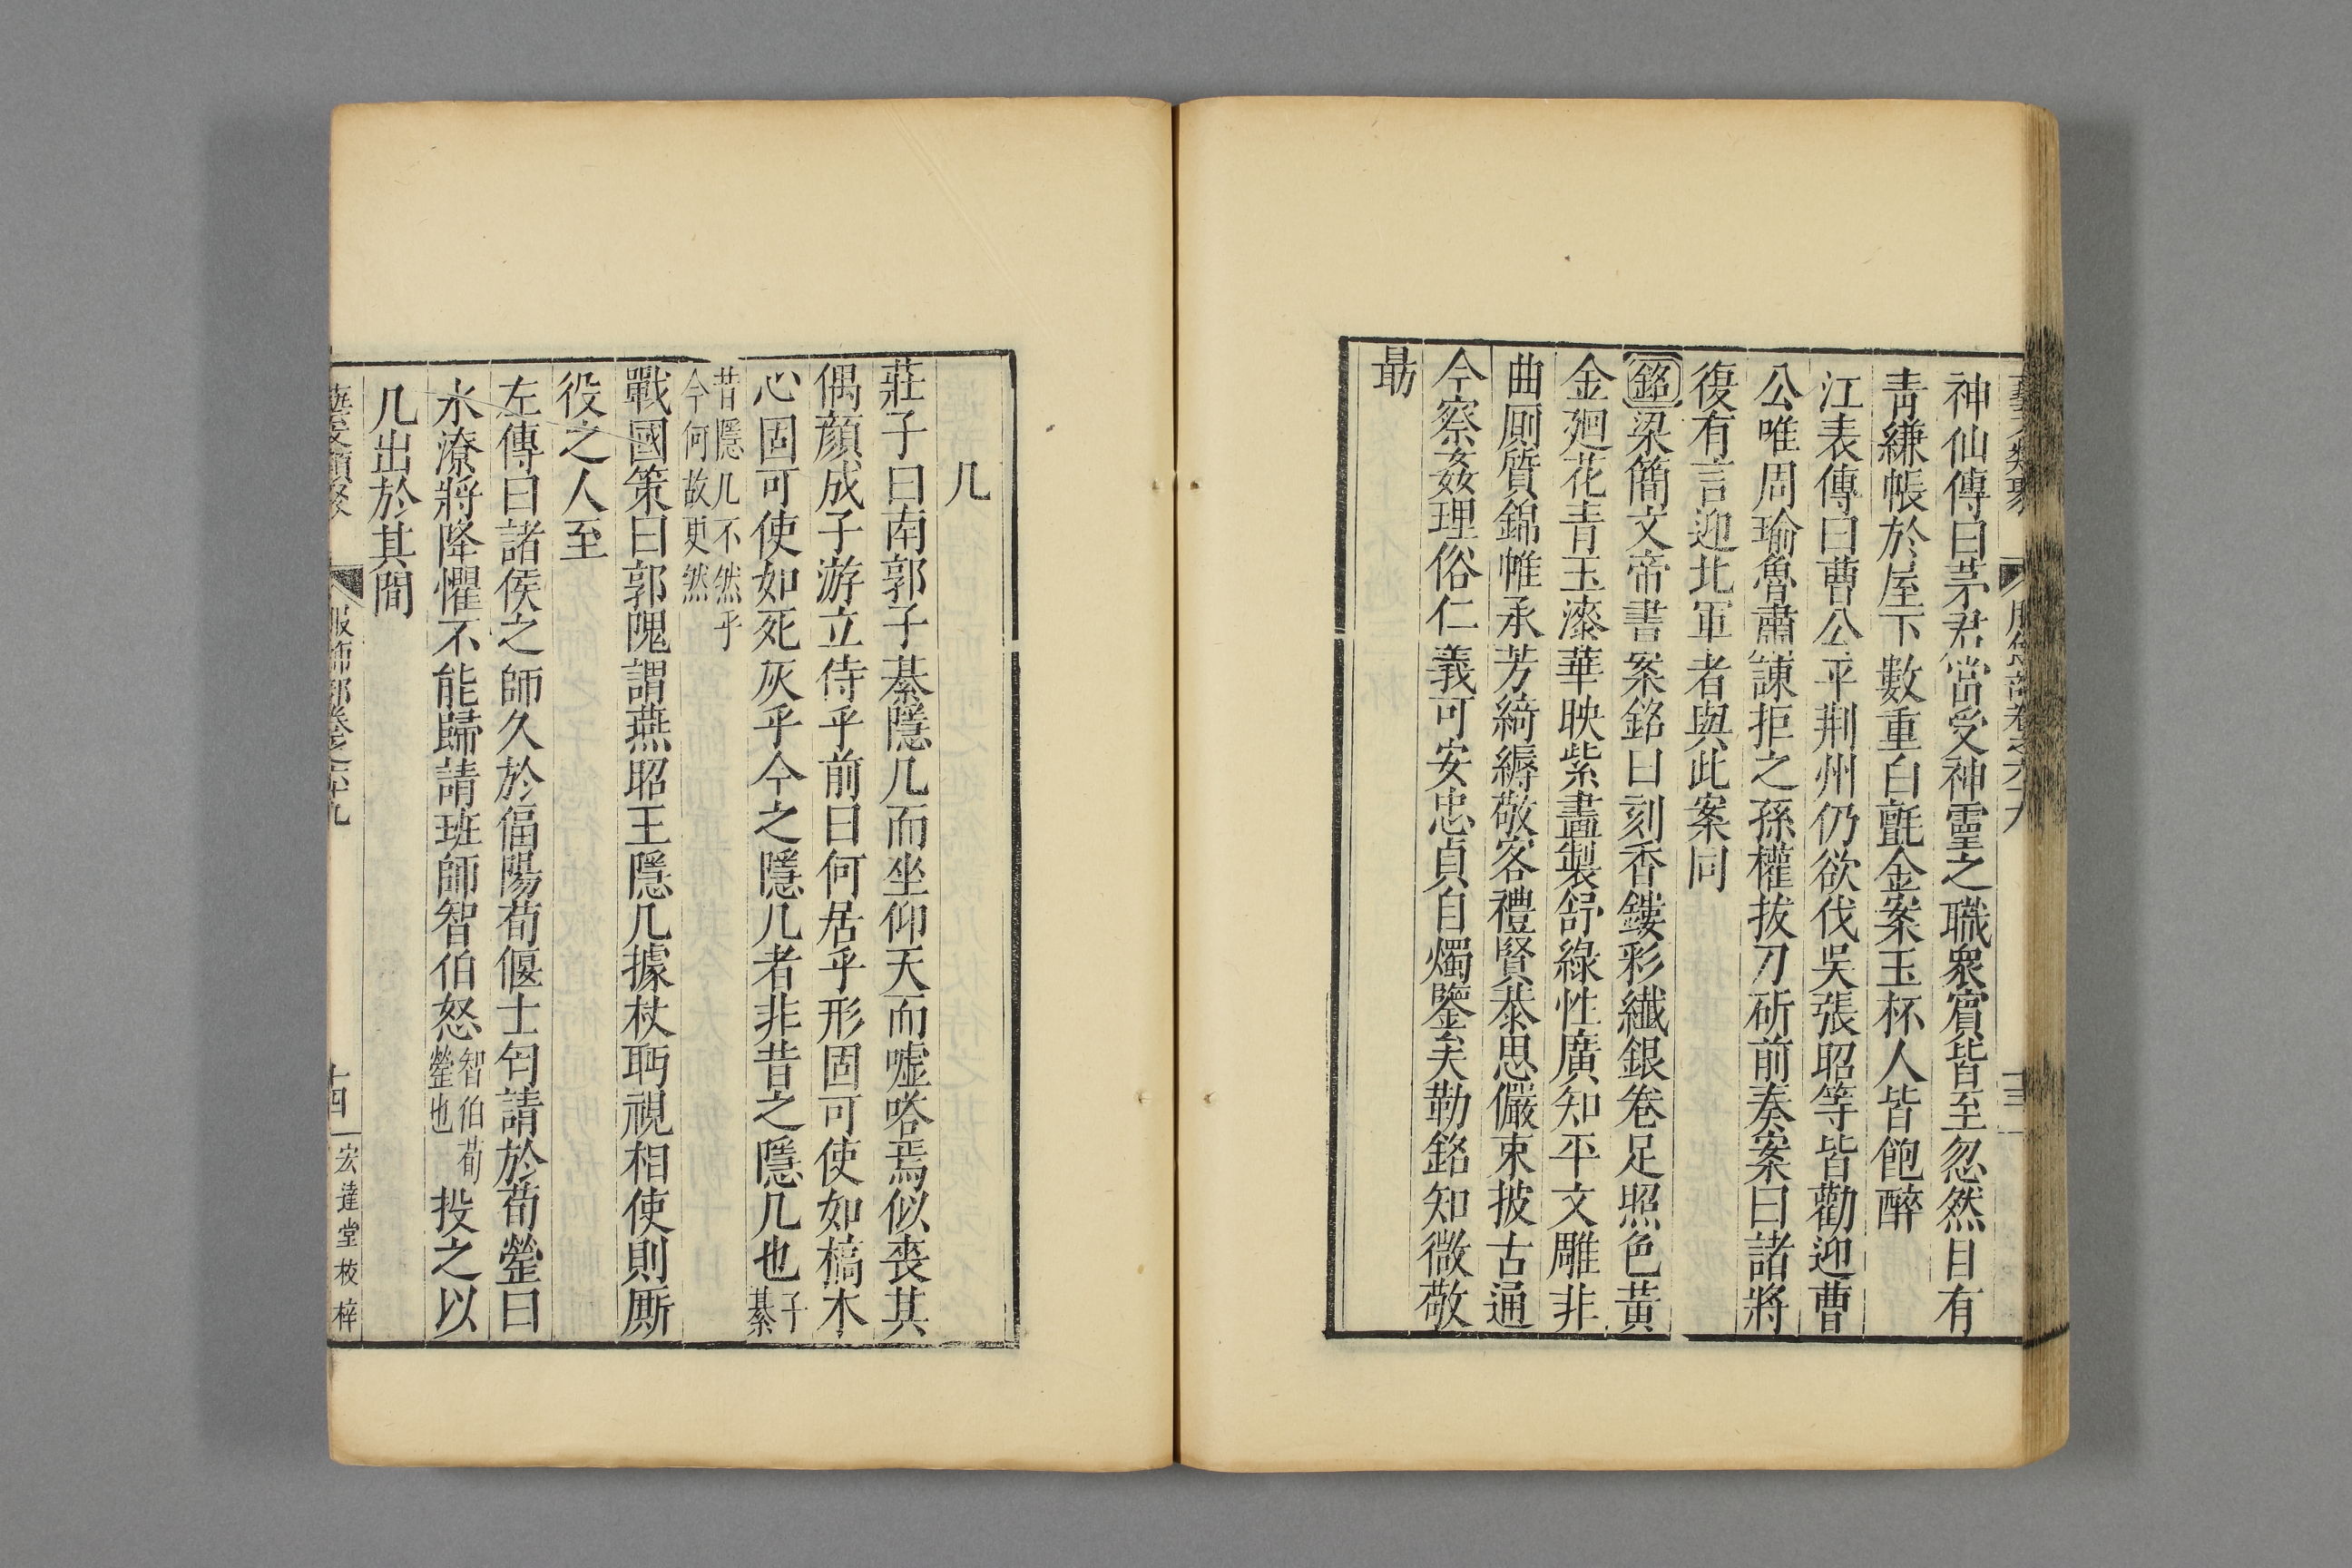 神仙傳曰茅君當受神靈之職衆賓皆至忽然自有
青縑帳於屋下數重白氈金案玉杯人皆飽醉
江表傳曰曹公平荆州仍欲伐吳張昭等皆勸迎曹
公唯周瑜魯肅諫拒之孫權拔刀斫前奏案曰諸將
復有言迎北軍者與此案同
銘梁簡文帝書案銘曰刻香鏤彩纖銀卷足照色黃
金廻花青玉漆華映紫畵製舒綠性廣知平文雕非
曲厠質錦帷承芳綺縟敬客禮賢恭思儼束披古通
今察姦理俗仁義可安忠貞自燭鑒矣勒銘知微敬
勗
几
莊子曰南郭子綦隱几而坐仰天而嘘嗒焉似喪其
偶顔成子游立侍乎前曰何居乎形固可使如槁木
心固可使如死灰乎今之隱几者非昔之隱几也子綦
昔隱几不然乎今何故更然
戰國策曰郭隗謂燕昭王隱几據杖眄視相使則厮
役之人至
左傳曰諸侯之師久於偪陽荀偃士匄請於荀罃曰
水潦將降懼不能歸請班師智伯怒智伯荀罃也投之以
几出於其間
藝文類聚 服飾部卷之六十九 十四 宏達堂校梓